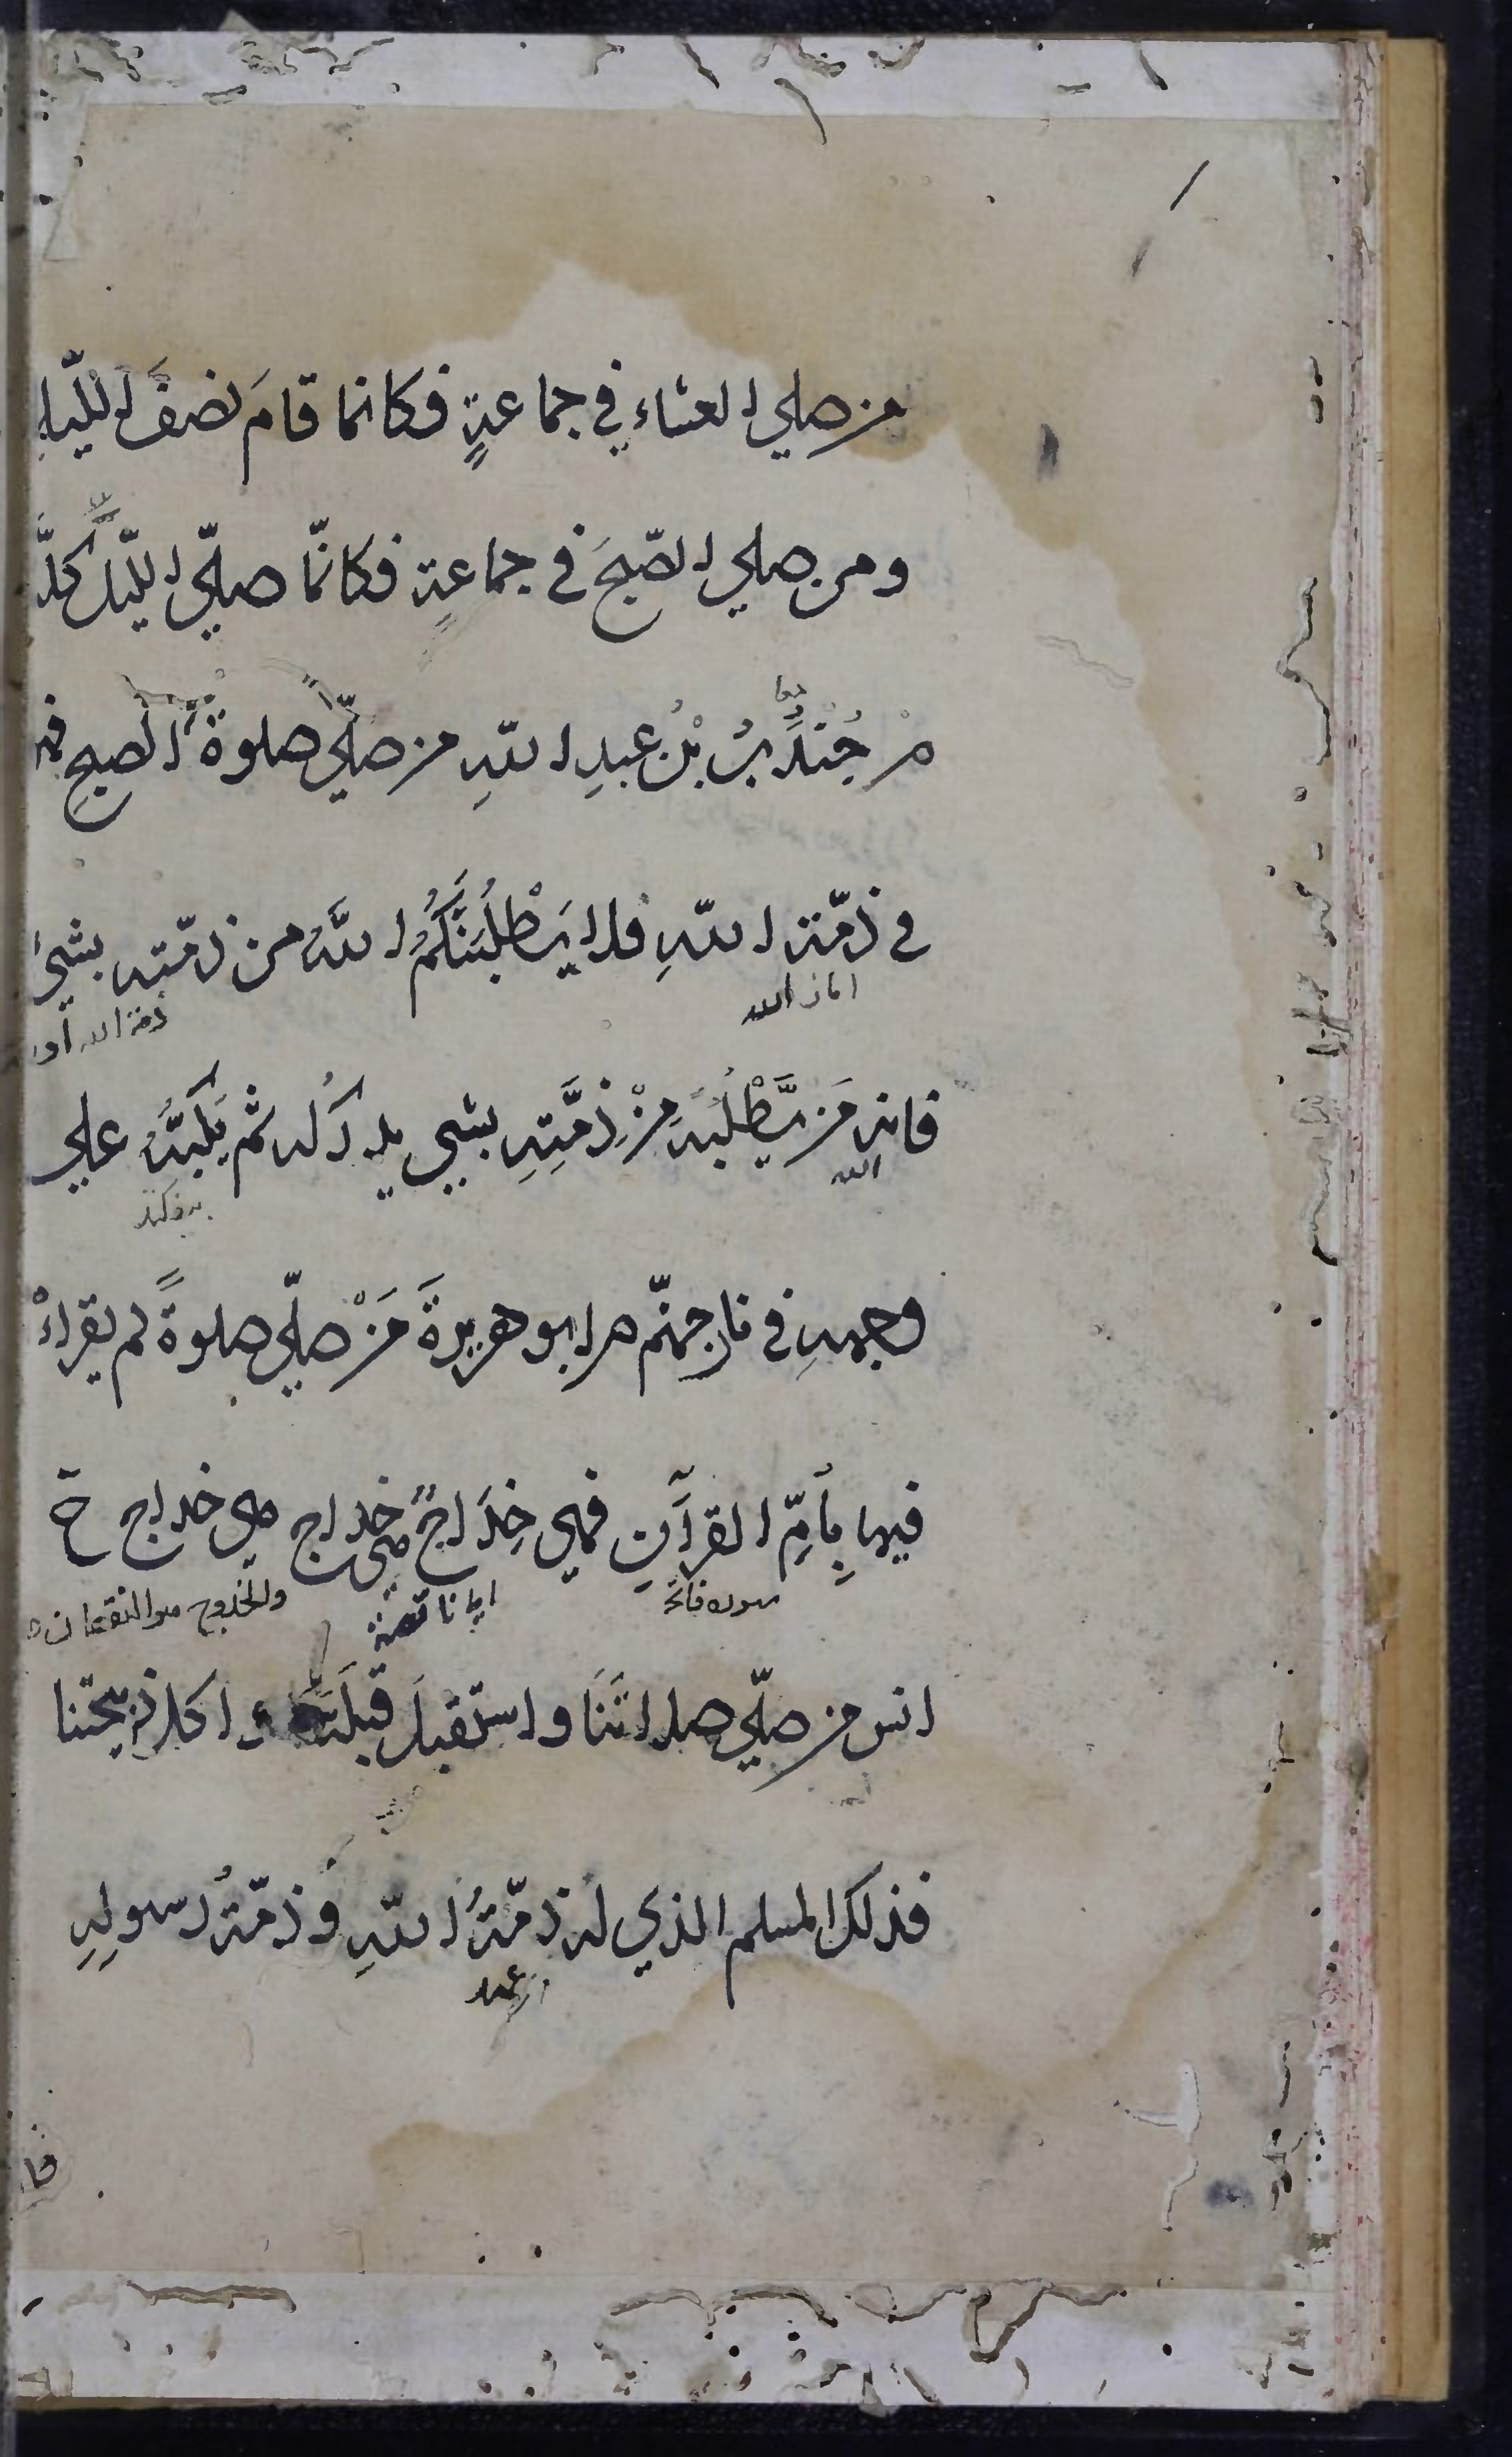 من صلي العشاء في جماعةٍ فكانما قامَ نصفَ الليّلِ
ومن صلي الصّبحَ في جماعةٍ فكانمّا صلّي الليّل كلَّه
م جُنْدَبُ بْنُ عبدِ اللّهِ من صلّي صلوةَ الصبحِ فهو
في ذمّة اللّهِ فلا يَطْلُبَنَّكُمُ اللّهُ من ذمّته بشيءٍ
امان الله
ذمة الله
فانه مَن يَّطْلُبه مِنْ ذِمَّتِهِ بشيي يدركُه ثم يَكُبَّهُ علي
الله
وجههِ في نار جهنّم م ابو هريرةَ مَنْ صلّي صلوةً لم يقراءْ
فيها بِأُمِّ القرآنِ فهي خِدَاجٌ هي خداج هي خداج خ
سوره فاتحة
اي ناقصة
والخدوج هو النقصان
انس من صلّي صلاتَنَا واستقبلَ قبلَتَنا واكل ذبيحتنا
فذلك المسلم الذي له ذمّةُ اللّهِ وذمّةُ رسولِهِ
عهد
فلا